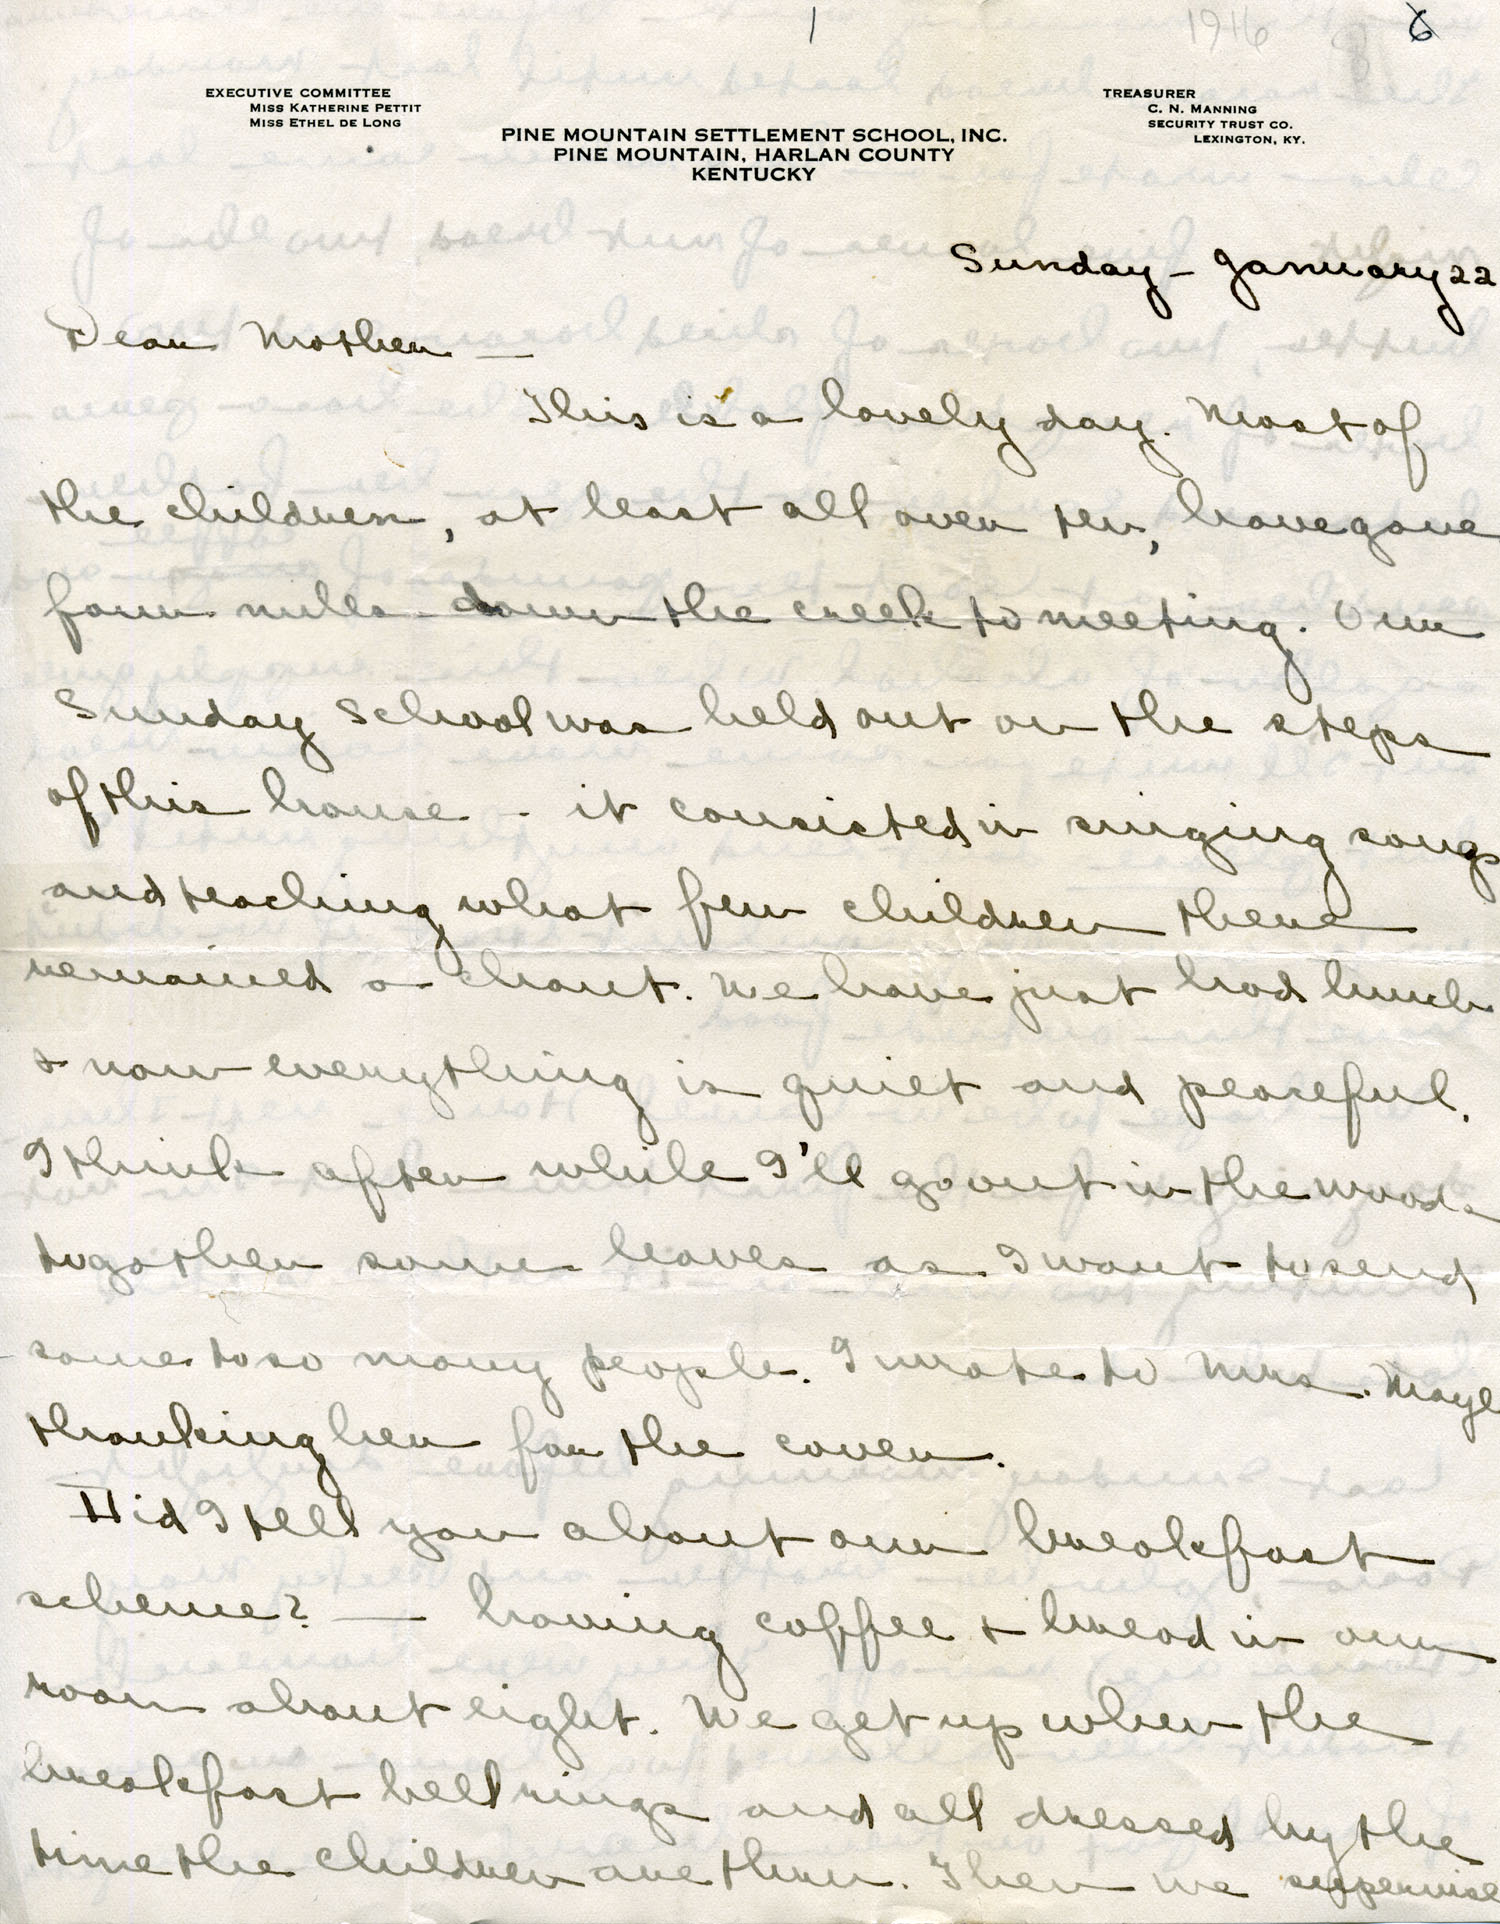 1
1916
6
EXECUTIVE COMMITTEE
MISS KATHERINE PETTIT
MISS ETHEL DE LONG
TREASURER
C. N. MANNING
SECURITY TRUST CO.
LEXINGTON, KY.
PINE MOUNTAIN SETTLEMENT SCHOOL, INC.
PINE MOUNTAIN, HARLAN COUNTY
KENTUCKY
Sunday – January 22
Dear Mother —
This is a lovely day. Most of
the children, at least all over ten, have gone
four miles down the creek to meeting. Our
Sunday School was held out on the steps
of this house - it consisted in singing songs
and teaching what few children there
remained a chant. We have just had lunch
& now everything is quiet and peaceful.
I think after while I'll go out in the woods
to gather some leaves as I want to send
some to so many people. I wrote to Mrs. Mayl
thanking her for the cover.
Did I tell you about our breakfast
scheme? — having coffee & bread in our
room about eight. We get up when the
breakfast bell rings and all dressed by the
time the children are thru. Then we supervise